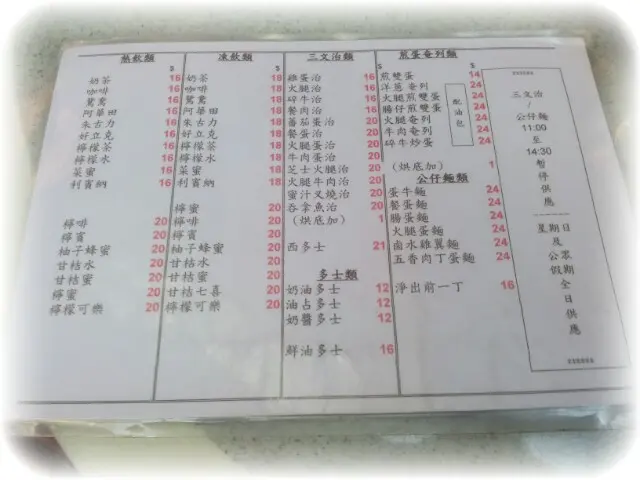 熱飲類
$
奶茶 16
咖啡 16
鴛鴦 16
阿華田 16
朱古力 16
好立克 16
檸檬茶 16
檸檬水 16
菜蜜 16
利賓納 16
檸啡 20
檸賓 20
柚子蜂蜜 20
甘桔水 20
甘桔蜜 20
檸蜜 20
檸檬可樂 20
凍飲類
$
奶茶 18
咖啡 18
鴛鴦 18
阿華田 18
朱古力 18
好立克 18
檸檬茶 18
檸檬水 18
菜蜜 18
利賓納 18
檸蜜 20
檸啡 20
檸賓 20
柚子蜂蜜 20
甘桔水 20
甘桔蜜 20
甘桔七喜 20
檸檬可樂 20
三文治類
$
雞蛋治 16
火腿治 16
碎牛治 16
餐肉治 16
蕃茄蛋治 20
餐蛋治 20
火腿蛋治 20
牛肉蛋治 20
芝士火腿治 20
火腿牛肉治 20
蜜汁叉燒治 20
吞拿魚治 20
(烘底加) 1
西多士 21
多士類
奶油多士 12
油占多士 12
奶醬多士 12
鮮油多士 16
煎蛋奄列類
$
煎雙蛋 14
洋蔥奄列 24
火腿煎雙蛋 24
腸仔煎雙蛋 24
火腿奄列 24
牛肉奄列 24
碎牛炒蛋 24
配油包
(烘底加) 1
公仔麵類
蛋牛麵 24
餐蛋麵 24
腸蛋麵 24
火腿蛋麵 24
鹵水雞翼麵 24
五香肉丁蛋麵 24
淨出前一丁 16
******
三文治
/
公仔麵
11:00
至
14:30
暫停供應
星期日及公眾假期全日供應
******